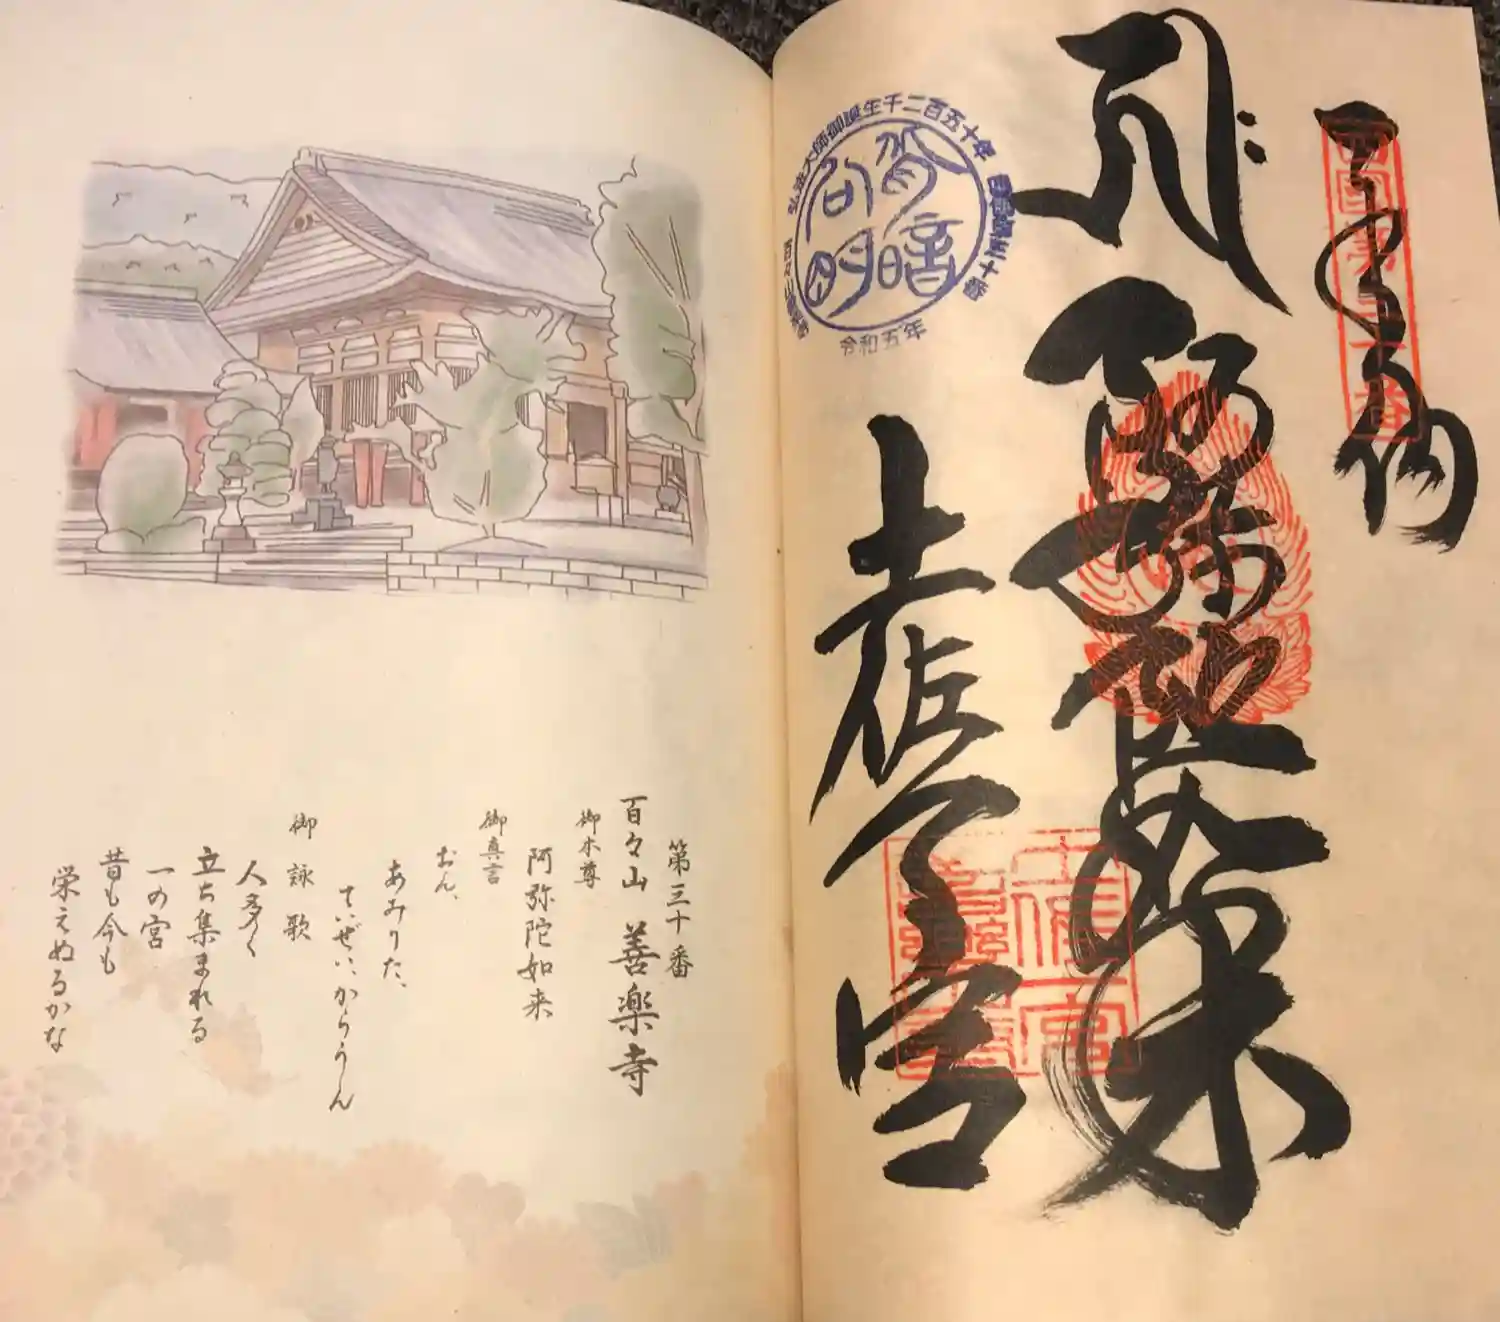 奉納
四国第三十番
阿弥陀如来
土佐一宮
土佐一宮
弘法大師御誕生千二百五十年
令和五年
第三十番
百々山 善楽寺
御本尊
阿弥陀如来
御真言
おん、
あみりた、
ていぜい、からうん
御詠歌
人多く
立ち集まれる
一の宮
昔も今も
栄えぬるかな